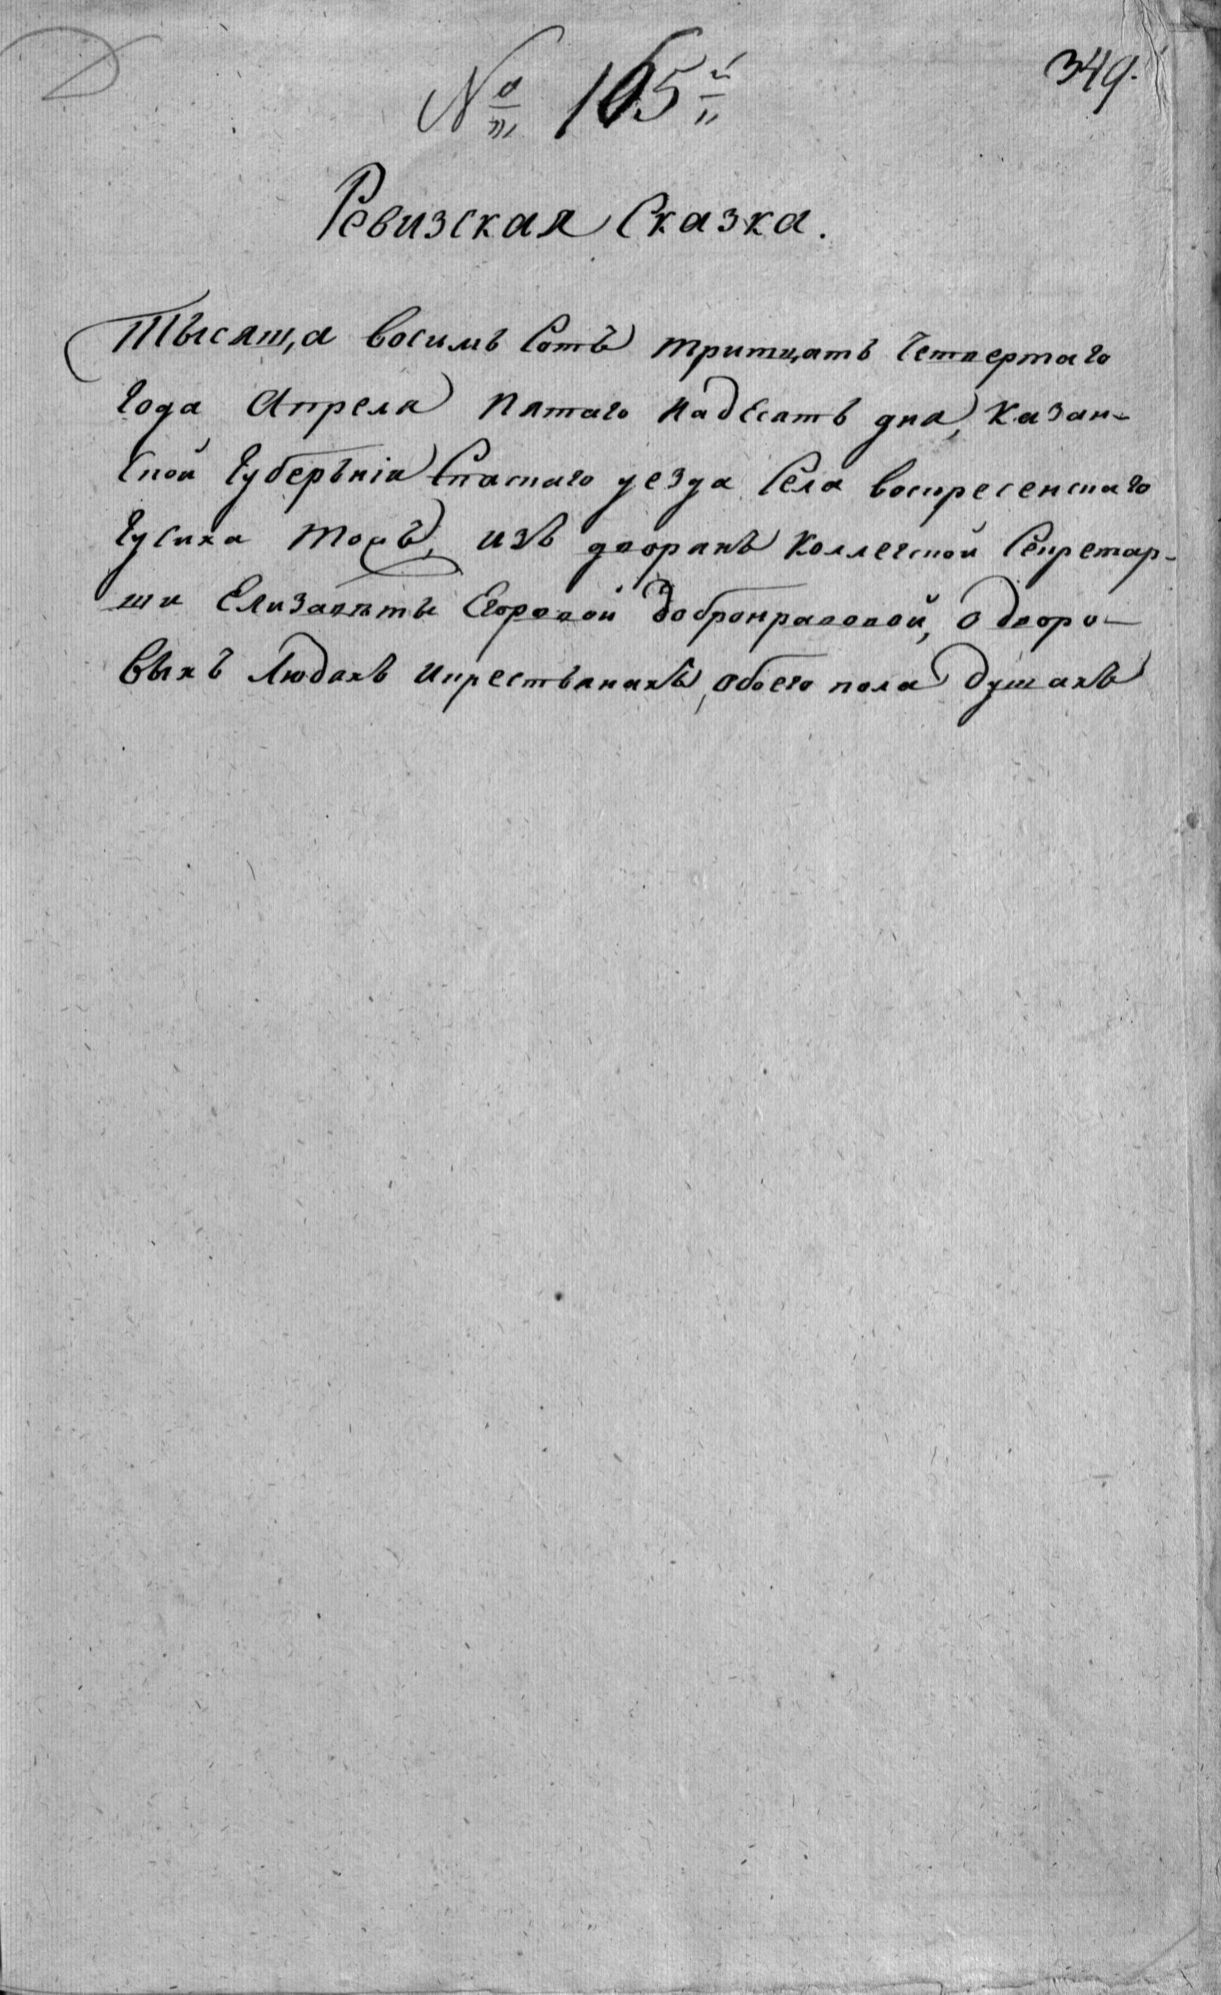 № 165й
349.
Ревизская Сказка.
Тысяща восимь Сотъ тритцать Четвертаго
Года Апреля пятаго надесать дня, Казан-
ской Губерънiи Спаскаго уезда Села воскресенскаго
Гусиха тожъ, изъ дворянъ Коллегской Секретар-
ши Елизаветы Егоровой Добронравовой, о дворо-
выхъ Людяхъ икрестьянахъ, обоего пола Душахъ